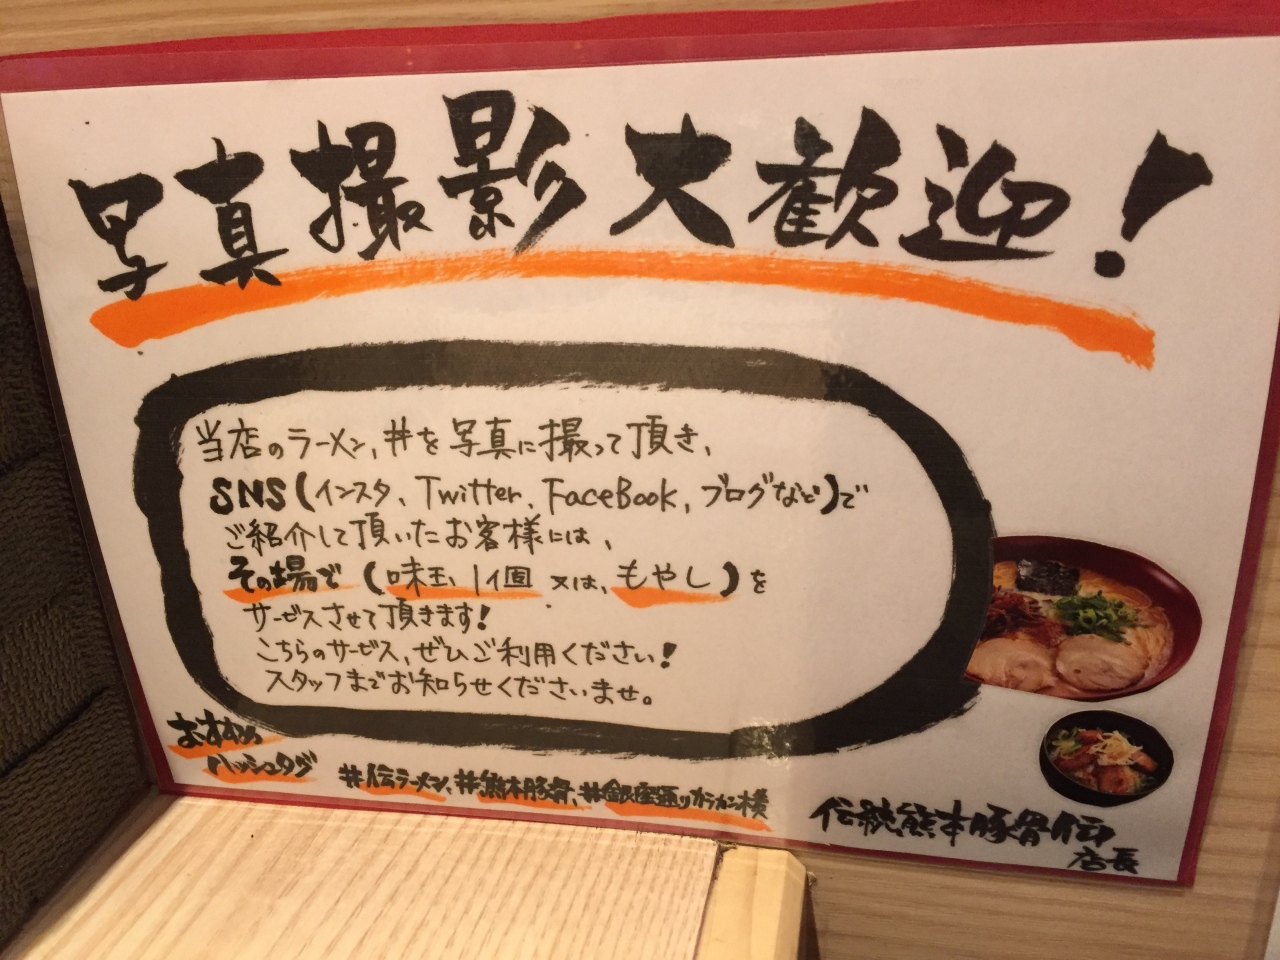 写真撮影大歓迎!
当店のラーメン、丼を写真に撮って頂き、
SNS(インスタ、Twitter、FaceBook、ブログなど)で
ご紹介して頂いたお客様には、
その場で(味玉、1個 又は、もやし)を
サービスさせて頂きます!
こちらのサービス、ぜひご利用ください!
スタッフまでお知らせくださいませ。
おすすめ
ハッシュタグ
#伝ラーメン、#熊本豚骨、#銀座通りカラオケ横
伝統熊本豚骨伝
店長